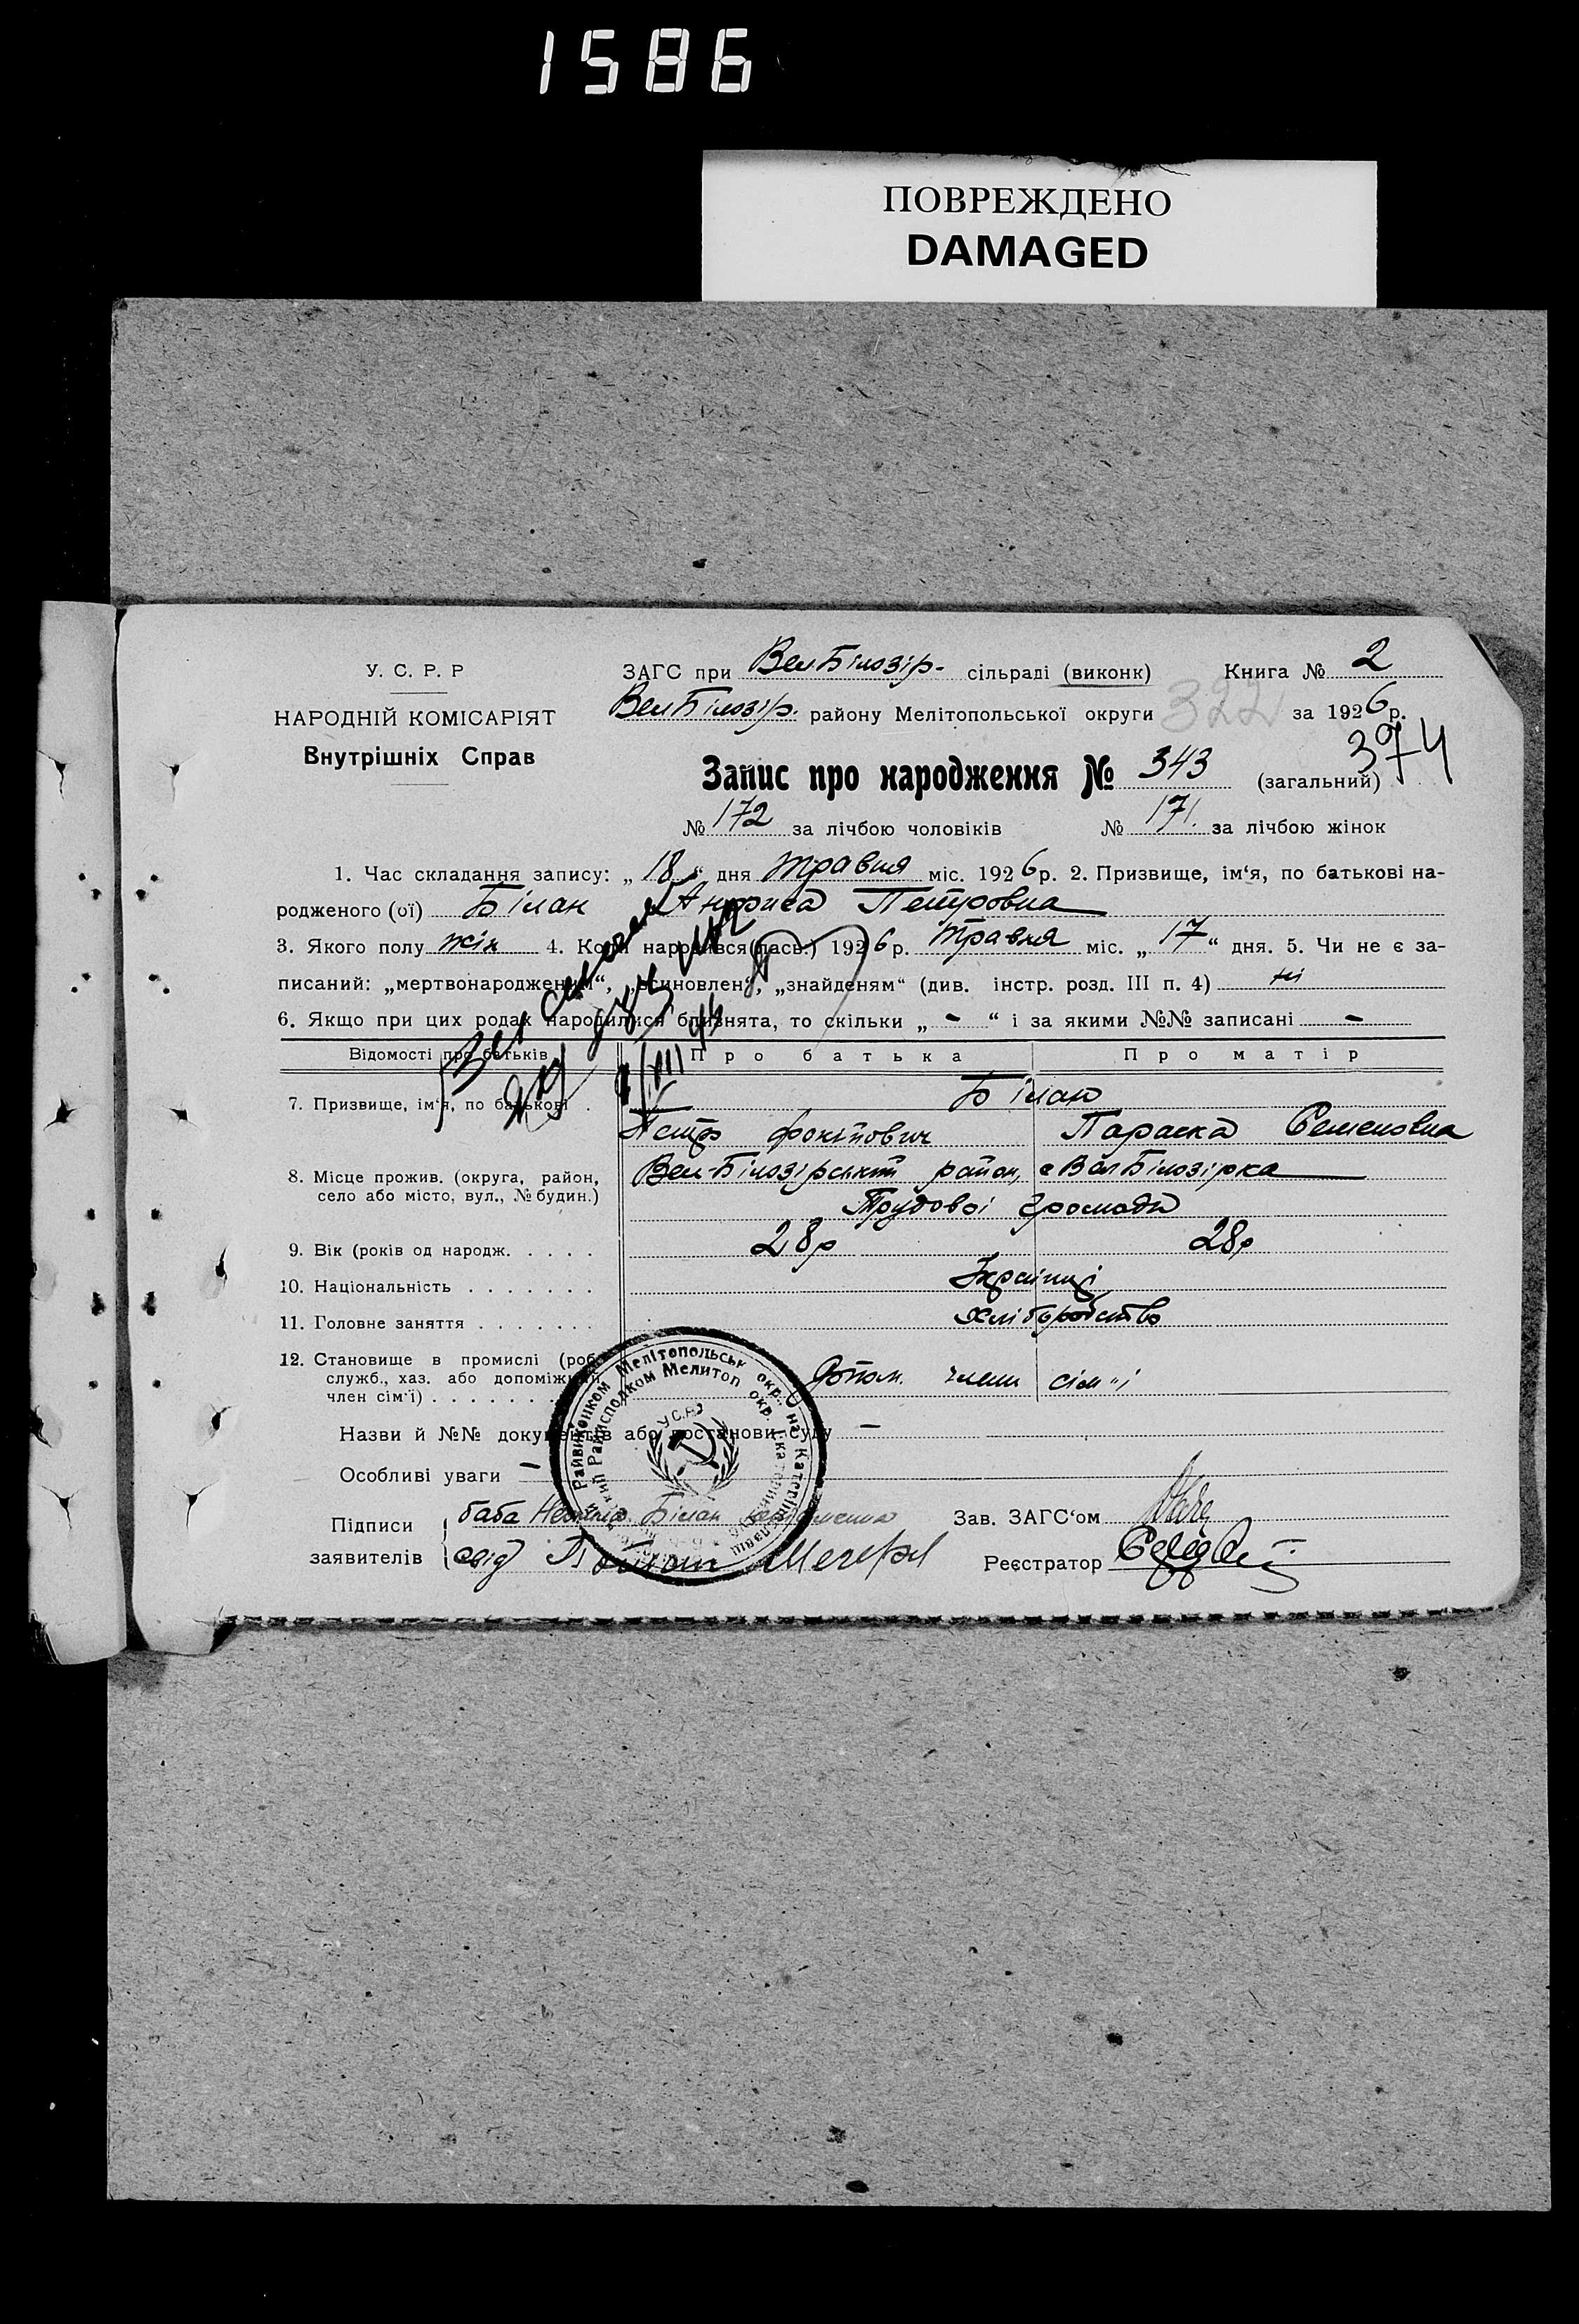 1586
ПОВРЕЖДЕНО
DAMAGED
У. С. Р. Р
НАРОДНІЙ КОМІСАРІЯТ
Внутрішніх Справ
ЗАГС при Вел Білозір- сільраді (виконк) Книга № 2
Вел Білозір. району Мелітопольської округи 322 за 1926 р.
374
Запис про народження № 343 (загальний)
№ 172 за лічбою чоловіків № 171. за лічбою жінок
1. Час складання запису: „ 18 “ дня травня міс. 1926 р. 2. Призвище, ім‘я, по батькові на-
родженого (ої) Білан Анфиса Петровна
3. Якого полу жін 4. Коли народився(лась.) 1926 р. травня міс. „ 17 “ дня. 5. Чи не є за-
писаний: „мертвонароджений“, „всиновлен“, „знайденям“ (див. інстр. розд. III п. 4) ні
6. Якщо при цих родах народилися близнята, то скільки „ - “ і за якими №№ записані -
Відомості про батьків Про батька Про матір
7. Призвище, ім‘я, по батькові . Білан
Петр Парасказ Семеновна
8. Місце прожив. (округа, район, село або місто, вул., № будин.) Вел-Білозірський район, с Вел Білозірка
Трудової громади
9. Вік (років од народж. . . . . 28 р 28 р
10. Національність . . . . . . . Українці
11. Головне заняття . . . . . . . Хліборобство
12. Становище в промислі (роб. служб., хаз. або допоміжний член сім‘ї) . . . . . . допом. члени сім"ї
Назви й №№ документів або постанови суду —
Особливі уваги —
Підписи заявителів баба Білан
свід
Зав. ЗАГС‘ом
Реєстратор